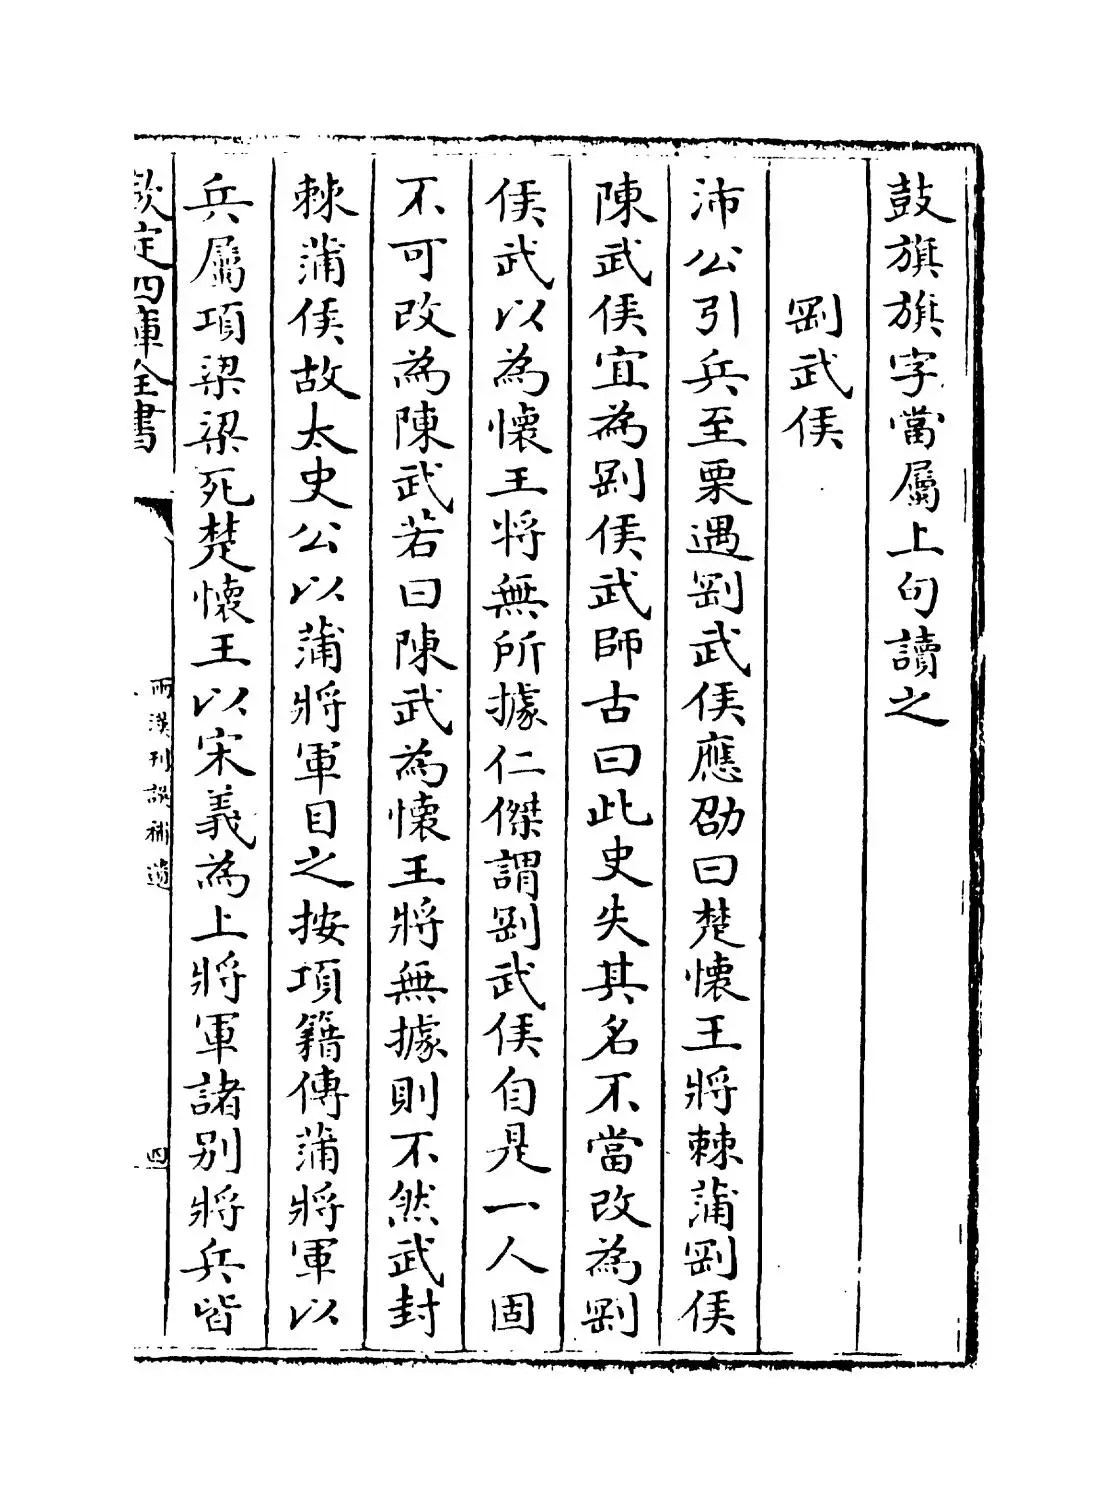 鼓旗旗字當屬上句讀之
剛武侯
沛公引兵至栗遇剛武侯應劭曰楚懷王將棘蒲剛侯
陳武侯宜為剛侯武師古曰此史失其名不當改為剛
侯武以為懷王将無所據仁傑謂剛武侯自是一人固
不可改為陳武若曰陳武為懷王將無據則不然武封
棘蒲侯故太史公以蒲將軍目之按項籍傳蒲將軍以
兵屬項梁梁死楚懷王以宋義為上將軍諸别將兵皆
欽定四庫全書
兩漢刊誤補遺
四